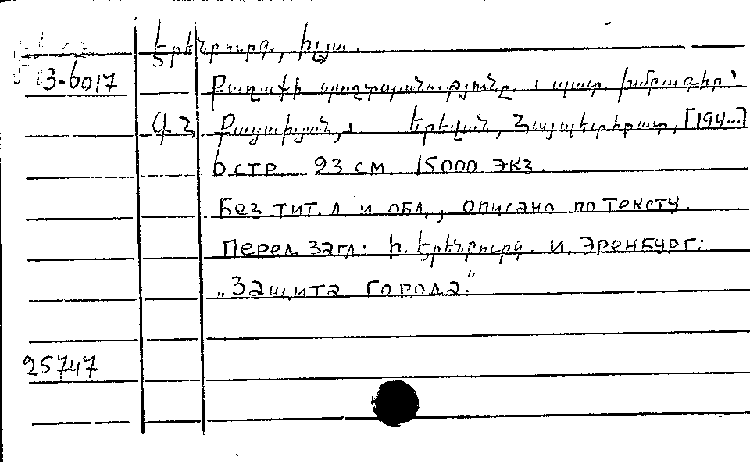 Էրենբուրգ, Իլյա.
13-6017
Քաղաքի պաշտպանությունը. պատ. խմբագիր՝
Երևան, Հայպետհրատ, [194...]
6 стр. 23 см. 15000 экз.
Без тит. л и обл., описано по тексту.
Перед загл: Ի. Էրենբուրգ. И. Эренбург:
„Защита города."
25747